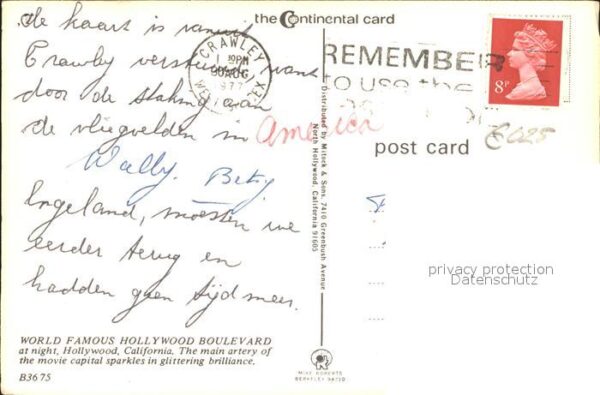 the Continental card
de kaart is vanuit
Crawley verstuurd want
door de staking van
de vliegvelden in America
Wally. Betsy.
Engeland, moesten we
eerder terug en
hadden geen tijd meer.
WORLD FAMOUS HOLLYWOOD BOULEVARD
at night, Hollywood, California. The main artery of
the movie capital sparkles in glittering brilliance.
B3675
Distributed by Mitock & Sons, 7410 Greenbush Avenue
North Hollywood, California 91605
MIKE ROBERTS
BERKELEY 94710
CRAWLEY
PM
30 AUG
1977
REMEMBER
to use the
8P
post card
privacy protection
Datenschutz